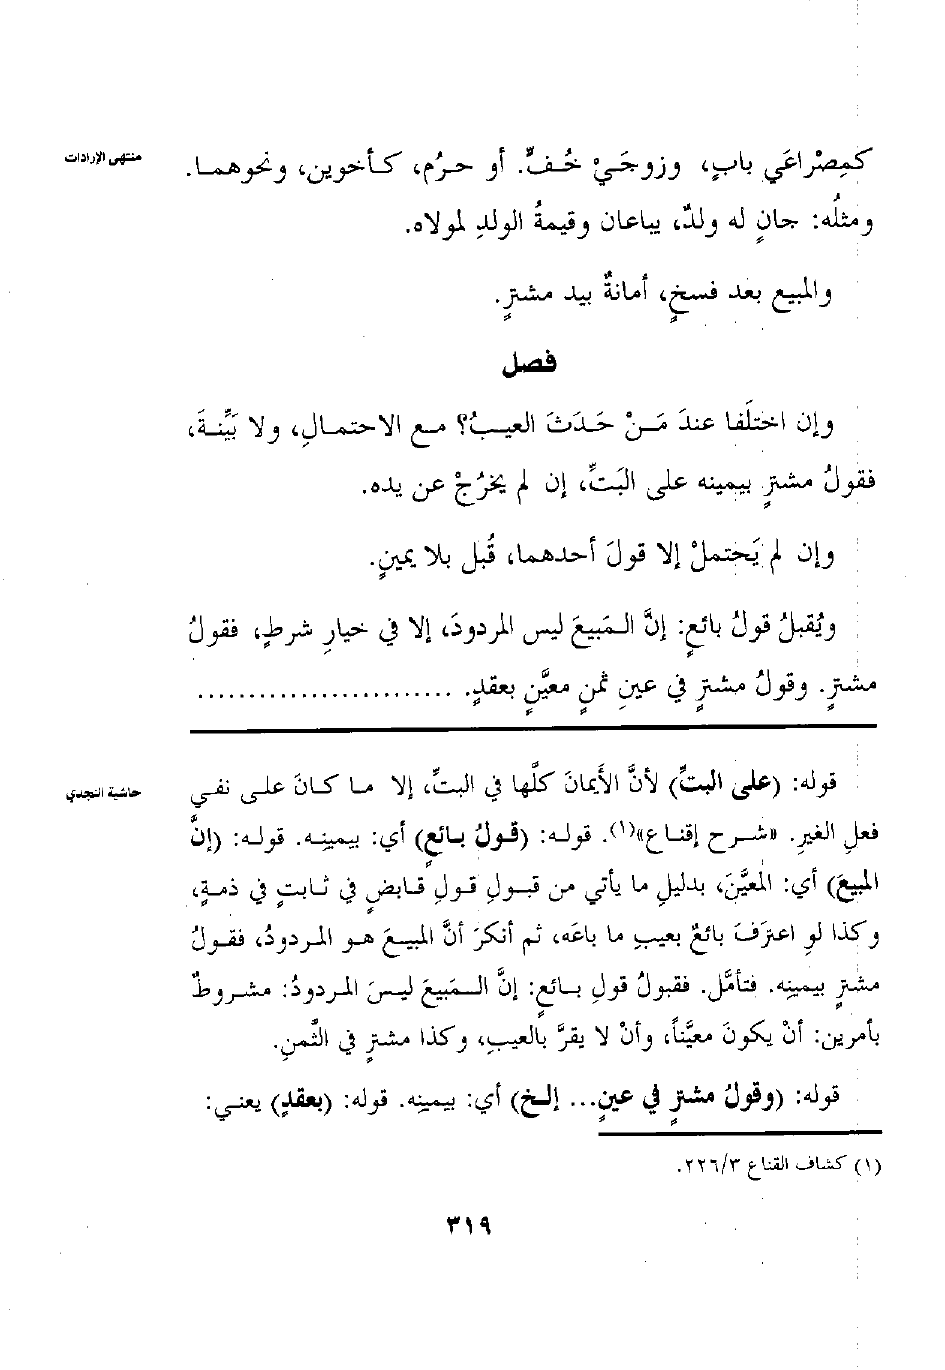 منتهى الإرادات
كمِصْراعَي بابٍ، وزوجَيْ خُفٍّ. أو حرُم، كأخوين، ونحوهما.
ومثلُه: جانٍ له ولدٌ، يباعان وقيمةُ الولدِ لمولاه.
والمبيع بعد فسخٍ، أمانةٌ بيد مشترٍ.
فصل
وإن اختلَفا عندَ مَنْ حَدَثَ العيبُ؟ مع الاحتمالِ، ولا بَيِّنةَ،
فقولُ مشترٍ بيمينه على البَتِّ، إن لم يخرُجْ عن يده.
وإن لم يَحتملْ إلا قولَ أحدهما، قُبل بلا يمينٍ.
ويُقبلُ قولُ بائعٍ: إنَّ المَبيعَ ليس المردودَ، إلا في خيارِ شرطٍ، فقولُ
مشترٍ. وقولُ مشترٍ في عينِ ثمنٍ معيَّنٍ بعقدٍ. .........................
حاشية النجدي
قوله: (على البتِّ) لأنَّ الأيمانَ كلَّها في البتِّ، إلا ما كانَ على نفي
فعلِ الغيرِ. «شرح إقناع»(١). قوله: (قولُ بائعٍ) أي: بيمينِه. قوله: (إنَّ
المبيعَ) أي: المعيَّنَ، بدليلِ ما يأتي من قبولِ قولِ قابضٍ في ثابتٍ في ذمةٍ،
وكذا لو اعترَفَ بائعٌ بعيبِ ما باعَه، ثم أنكرَ أنَّ المبيعَ هو المردودُ، فقولُ
مشترٍ بيمينِه. فتأمَّل. فقبولُ قولِ بائعٍ: إنَّ المَبيعَ ليسَ المردودُ: مشروطٌ
بأمرين: أنْ يكونَ معيَّناً، وأنْ لا يقرَّ بالعيبِ، وكذا مشترٍ في الثَّمنِ.
قوله: (وقولُ مشترٍ في عينٍ... إلخ) أي: بيمينِه. قوله: (بعقدٍ) يعني:
(١) كشاف القناع ٢٢٦/٣.
٣١٩